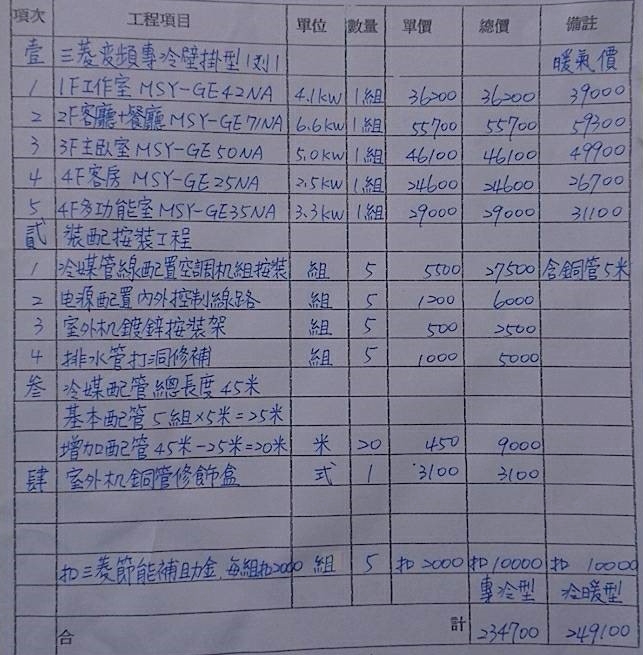 項次 工程項目 單位 數量 單價 總價 備註
壹 三菱変頻專冷壁掛型1対1 暖氣價
1 1F工作室 MSY-GE42NA 4.1kw 1組 36200 36200 39000
2 2F客廳+餐廳 MSY-GE71NA 6.6kw 1組 55700 55700 59300
3 3F主臥室 MSY-GE50NA 5.0kw 1組 46100 46100 49900
4 4F客房 MSY-GE25NA 2.5kw 1組 24600 24600 26700
5 4F多功能室 MSY-GE35NA 3.3kw 1組 29000 29000 31100
貳 裝配按裝工程
1 冷媒管線配置空調机組按裝 組 5 5500 27500 含銅管5米
2 电源配置內外控制線路 組 5 1200 6000
3 室外机鍍鋅按裝架 組 5 500 2500
4 排水管打洞修補 組 5 1000 5000
叁 冷媒配管總長度45米
基本配管5組×5米=25米
增加配管45米-25米=20米 米 20 450 9000
肆 室外机銅管修飾盒 式 1 3100 3100
扣三菱節能補助金,每組扣2000 組 5 扣2000 扣10000 扣10000
專冷型 冷暖型
合 計 234700 249100